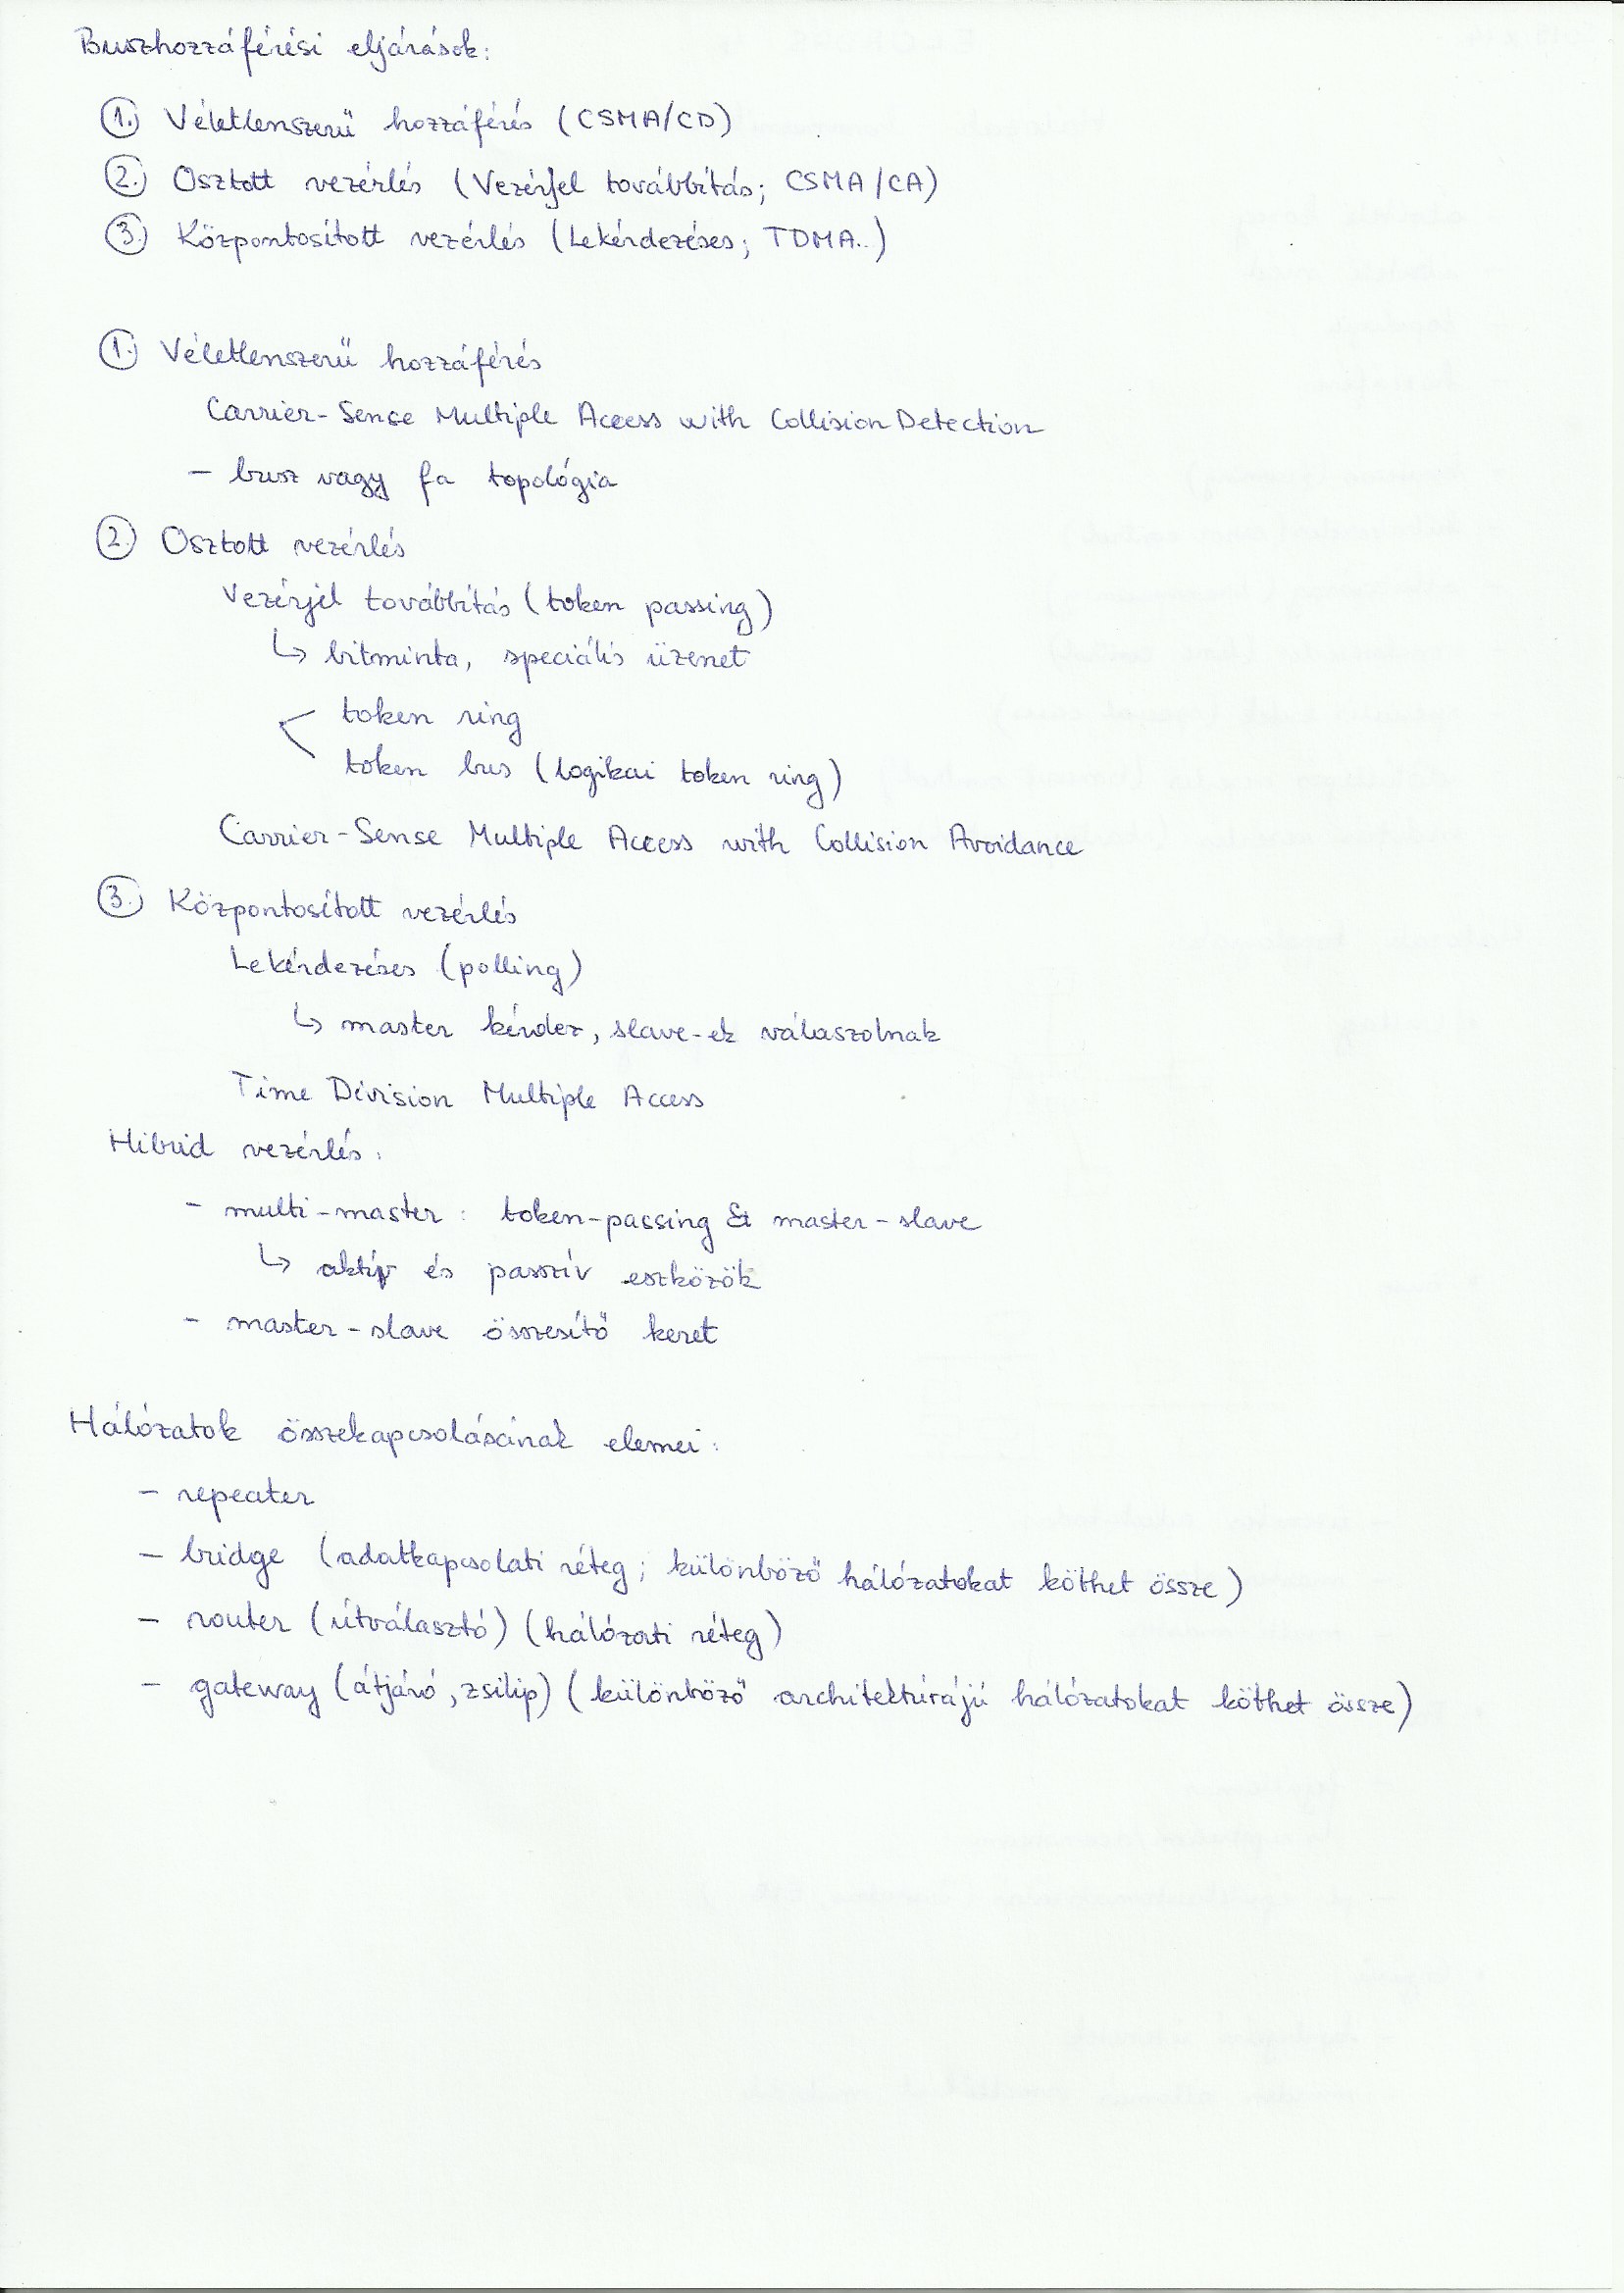 Buszhozzáférési eljárások:
1. Véletlenszerű hozzáférés (CSMA/CD)
2. Osztott vezérlés (Vezérjel továbbítás; CSMA/CA)
3. Központosított vezérlés (Lekérdezéses; TDMA..)
1. Véletlenszerű hozzáférés
Carrier-Sense Multiple Access with Collision Detection
- busz vagy fa topológia
2. Osztott vezérlés
Vezérjel továbbítás (token passing)
↳ bitminta, speciális üzenet
token ring
token bus (logikai token ring)
Carrier-Sense Multiple Access with Collision Avoidance
3. Központosított vezérlés
Lekérdezéses (polling)
↳ master kérdez, slave-ek válaszolnak
Time Division Multiple Access
Hibrid vezérlés:
- multi-master: token-passing & master-slave
↳ aktív és passzív eszközök
- master-slave összesítő keret
Hálózatok összekapcsolásának elemei:
- repeater
- bridge (adatkapcsolati réteg; különböző hálózatokat köthet össze)
- router (útválasztó) (hálózati réteg)
- gateway (átjáró, zsilip) (különböző architektúrájú hálózatokat köthet össze)